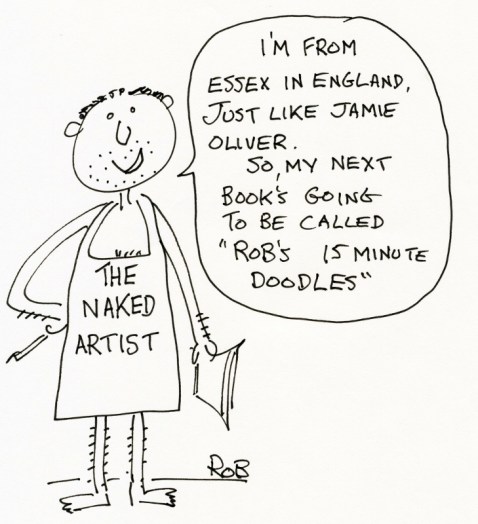 I'M FROM
ESSEX IN ENGLAND,
JUST LIKE JAMIE
OLIVER.
SO, MY NEXT
BOOK'S GOING
TO BE CALLED
"ROB'S 15 MINUTE
DOODLES"
THE
NAKED
ARTIST
ROB